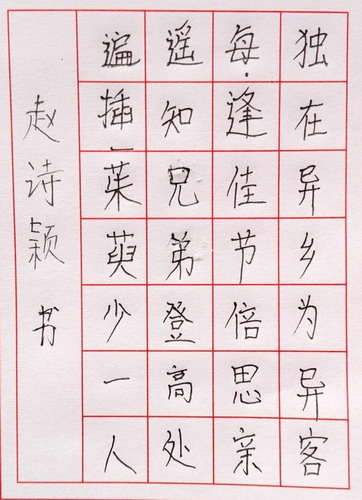 独在异乡为异客
每逢佳节倍思亲
遥知兄弟登高处
遍插茱萸少一人
赵诗颖书